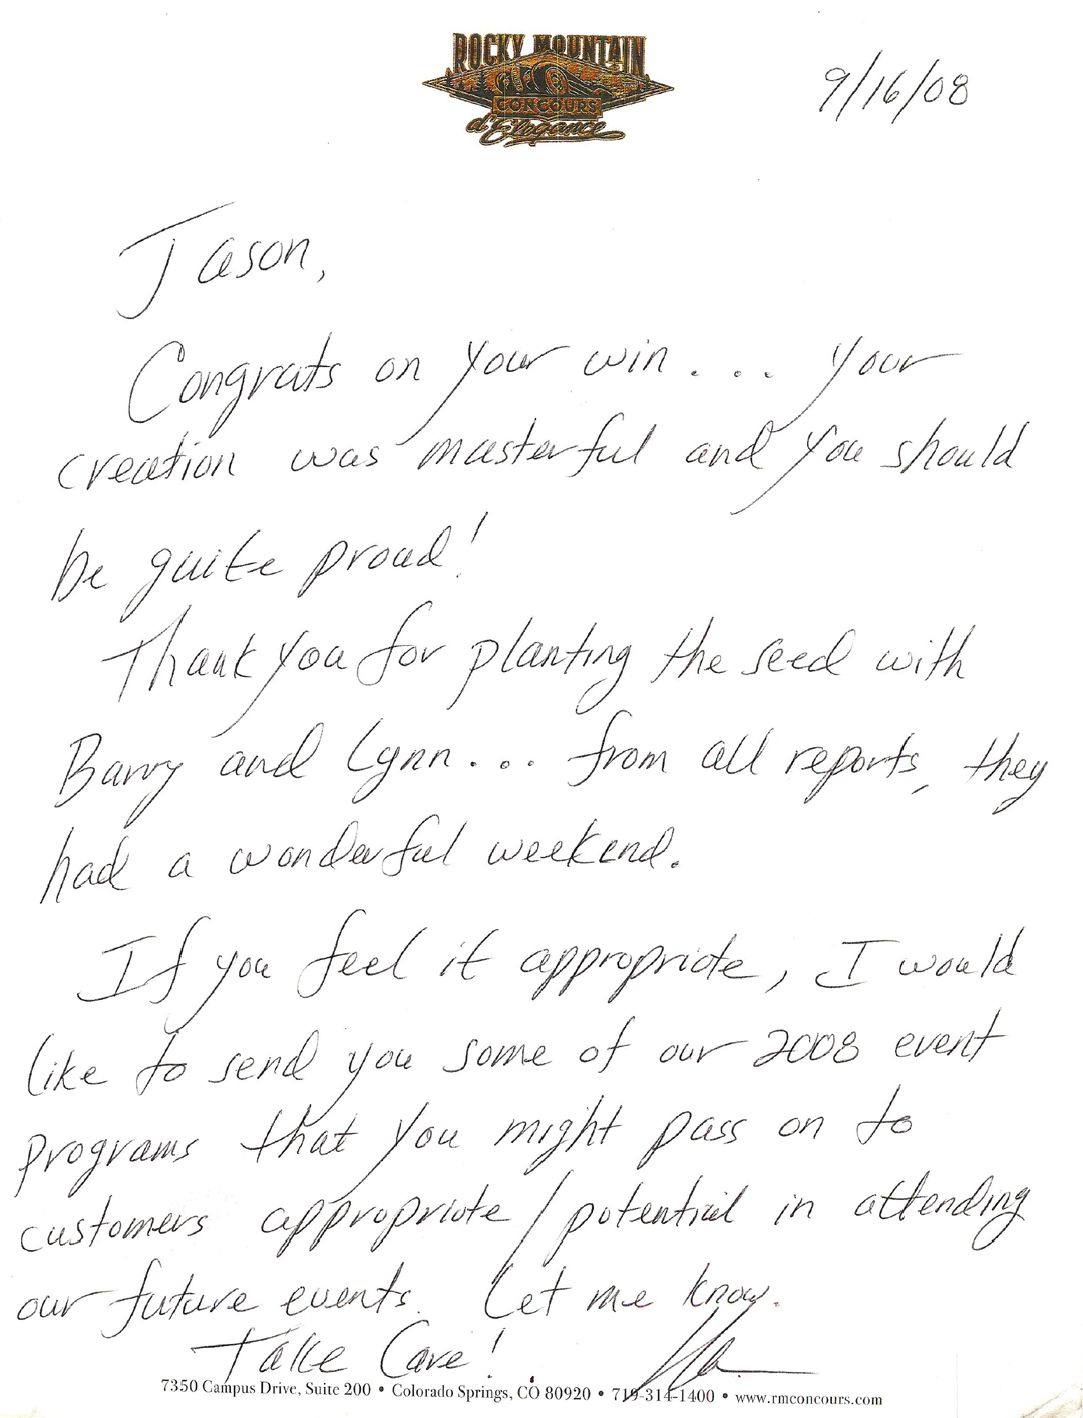 ROCKY MOUNTAIN
CONCOURS
d'Elegance
9/16/08
Jason,
Congrats on your win . . . your
creation was masterful and you should
be quite proud!
Thank you for planting the seed with
Barry and Lynn . . . from all reports, they
had a wonderful weekend.
If you feel it appropriate, I would
like to send you some of our 2008 event
programs that you might pass on to
customers appropriate / potential in attending
our future events. Let me know.
Take Care!
7350 Campus Drive, Suite 200 • Colorado Springs, CO 80920 • 719-314-1400 • www.rmconcours.com